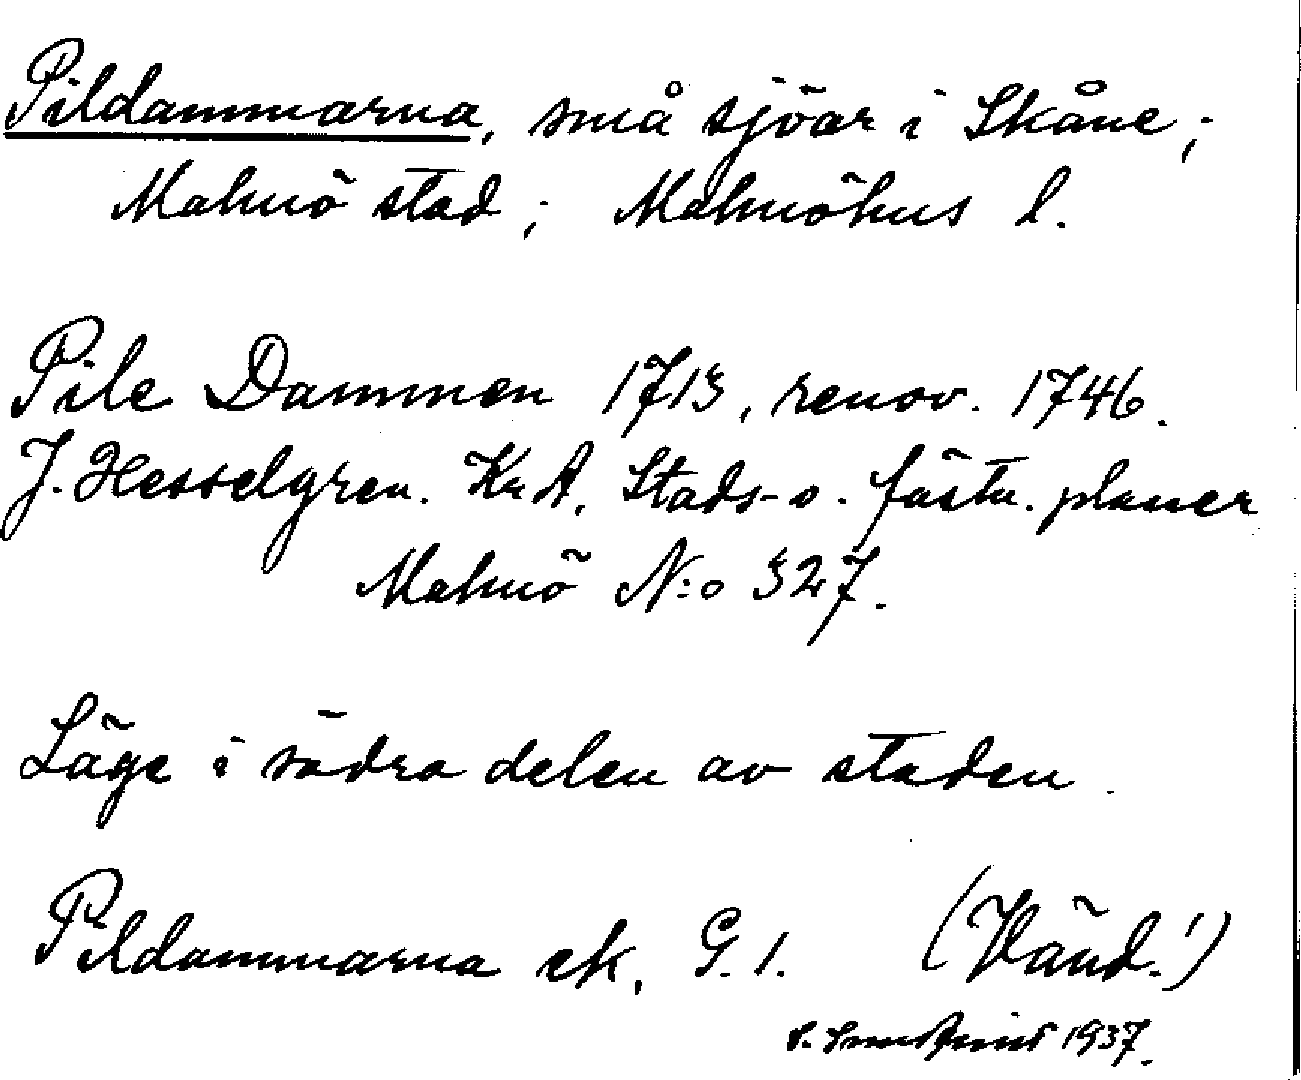 Pildammarna, små sjöar i Skåne;
Malmö stad; Malmöhus l.
Pile Dammen 1713, renov. 1746.
J. Hesselgren. Kr A. Stads- o. fästn. planer
Malmö N:o 327.
Läge i södra delen av staden.
Pildammarna ek, G. 1. (Vänd!)
1937.